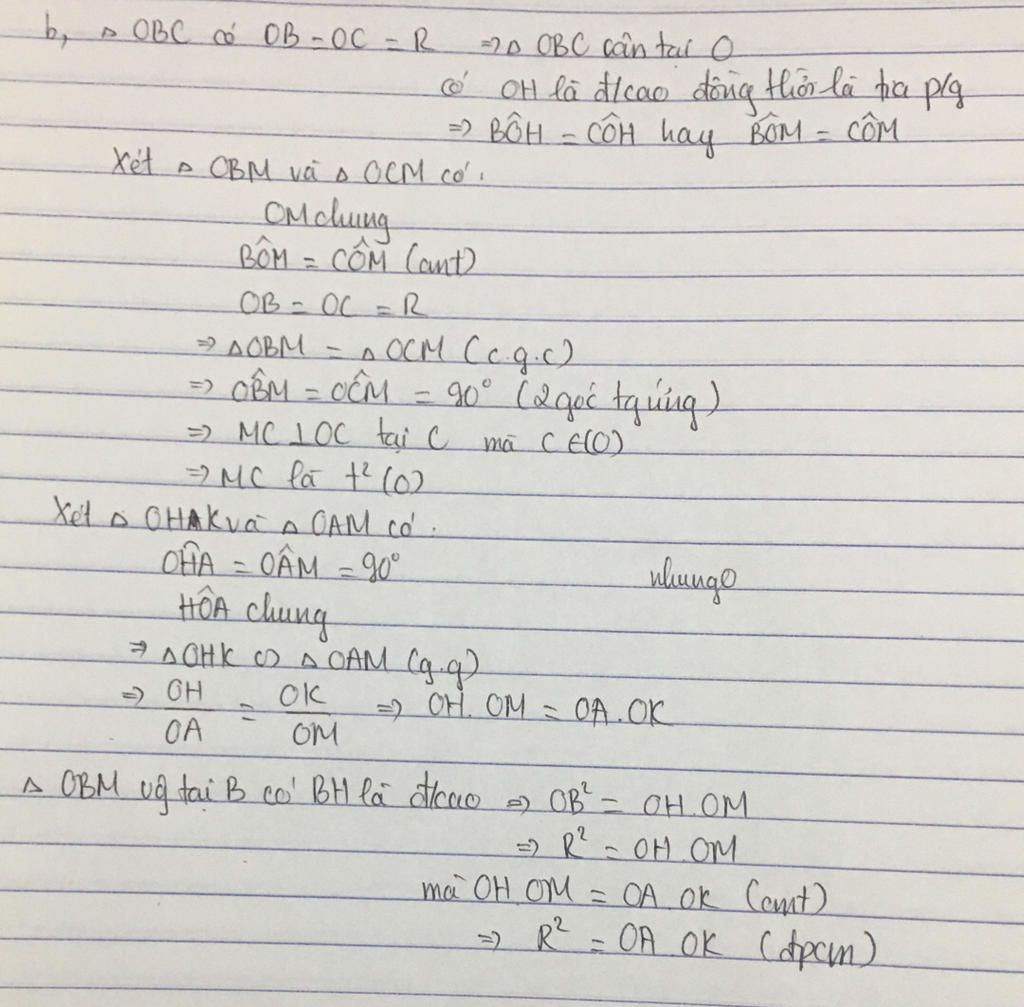 b, △ OBC có OB = OC = R ⇒ △ OBC cân tại O
có OH là đ/cao đồng thời là tia p/g
⇒ BÔH = CÔH hay BÔM = CÔM
Xét △ OBM và △ OCM có:
OM chung
BÔM = CÔM (cmt)
OB = OC = R
⇒ △OBM = △OCM (c.g.c)
⇒ OB̂M = OĈM = 90° (2 góc tg ứng)
⇒ MC ⊥ OC tại C mà C ∈ (O)
⇒ MC là t² (O)
Xét △ OHK và △ OAM có:
OĤA = OÂM = 90°
nhungO
HÔA chung
⇒ △OHK ∽ △OAM (g.g)
⇒ OH/OA = OK/OM ⇒ OH.OM = OA.OK
△ OBM vg tại B có BH là đ/cao ⇒ OB² = OH.OM
⇒ R² = OH.OM
mà OH.OM = OA.OK (cmt)
⇒ R² = OA.OK (đpcm)